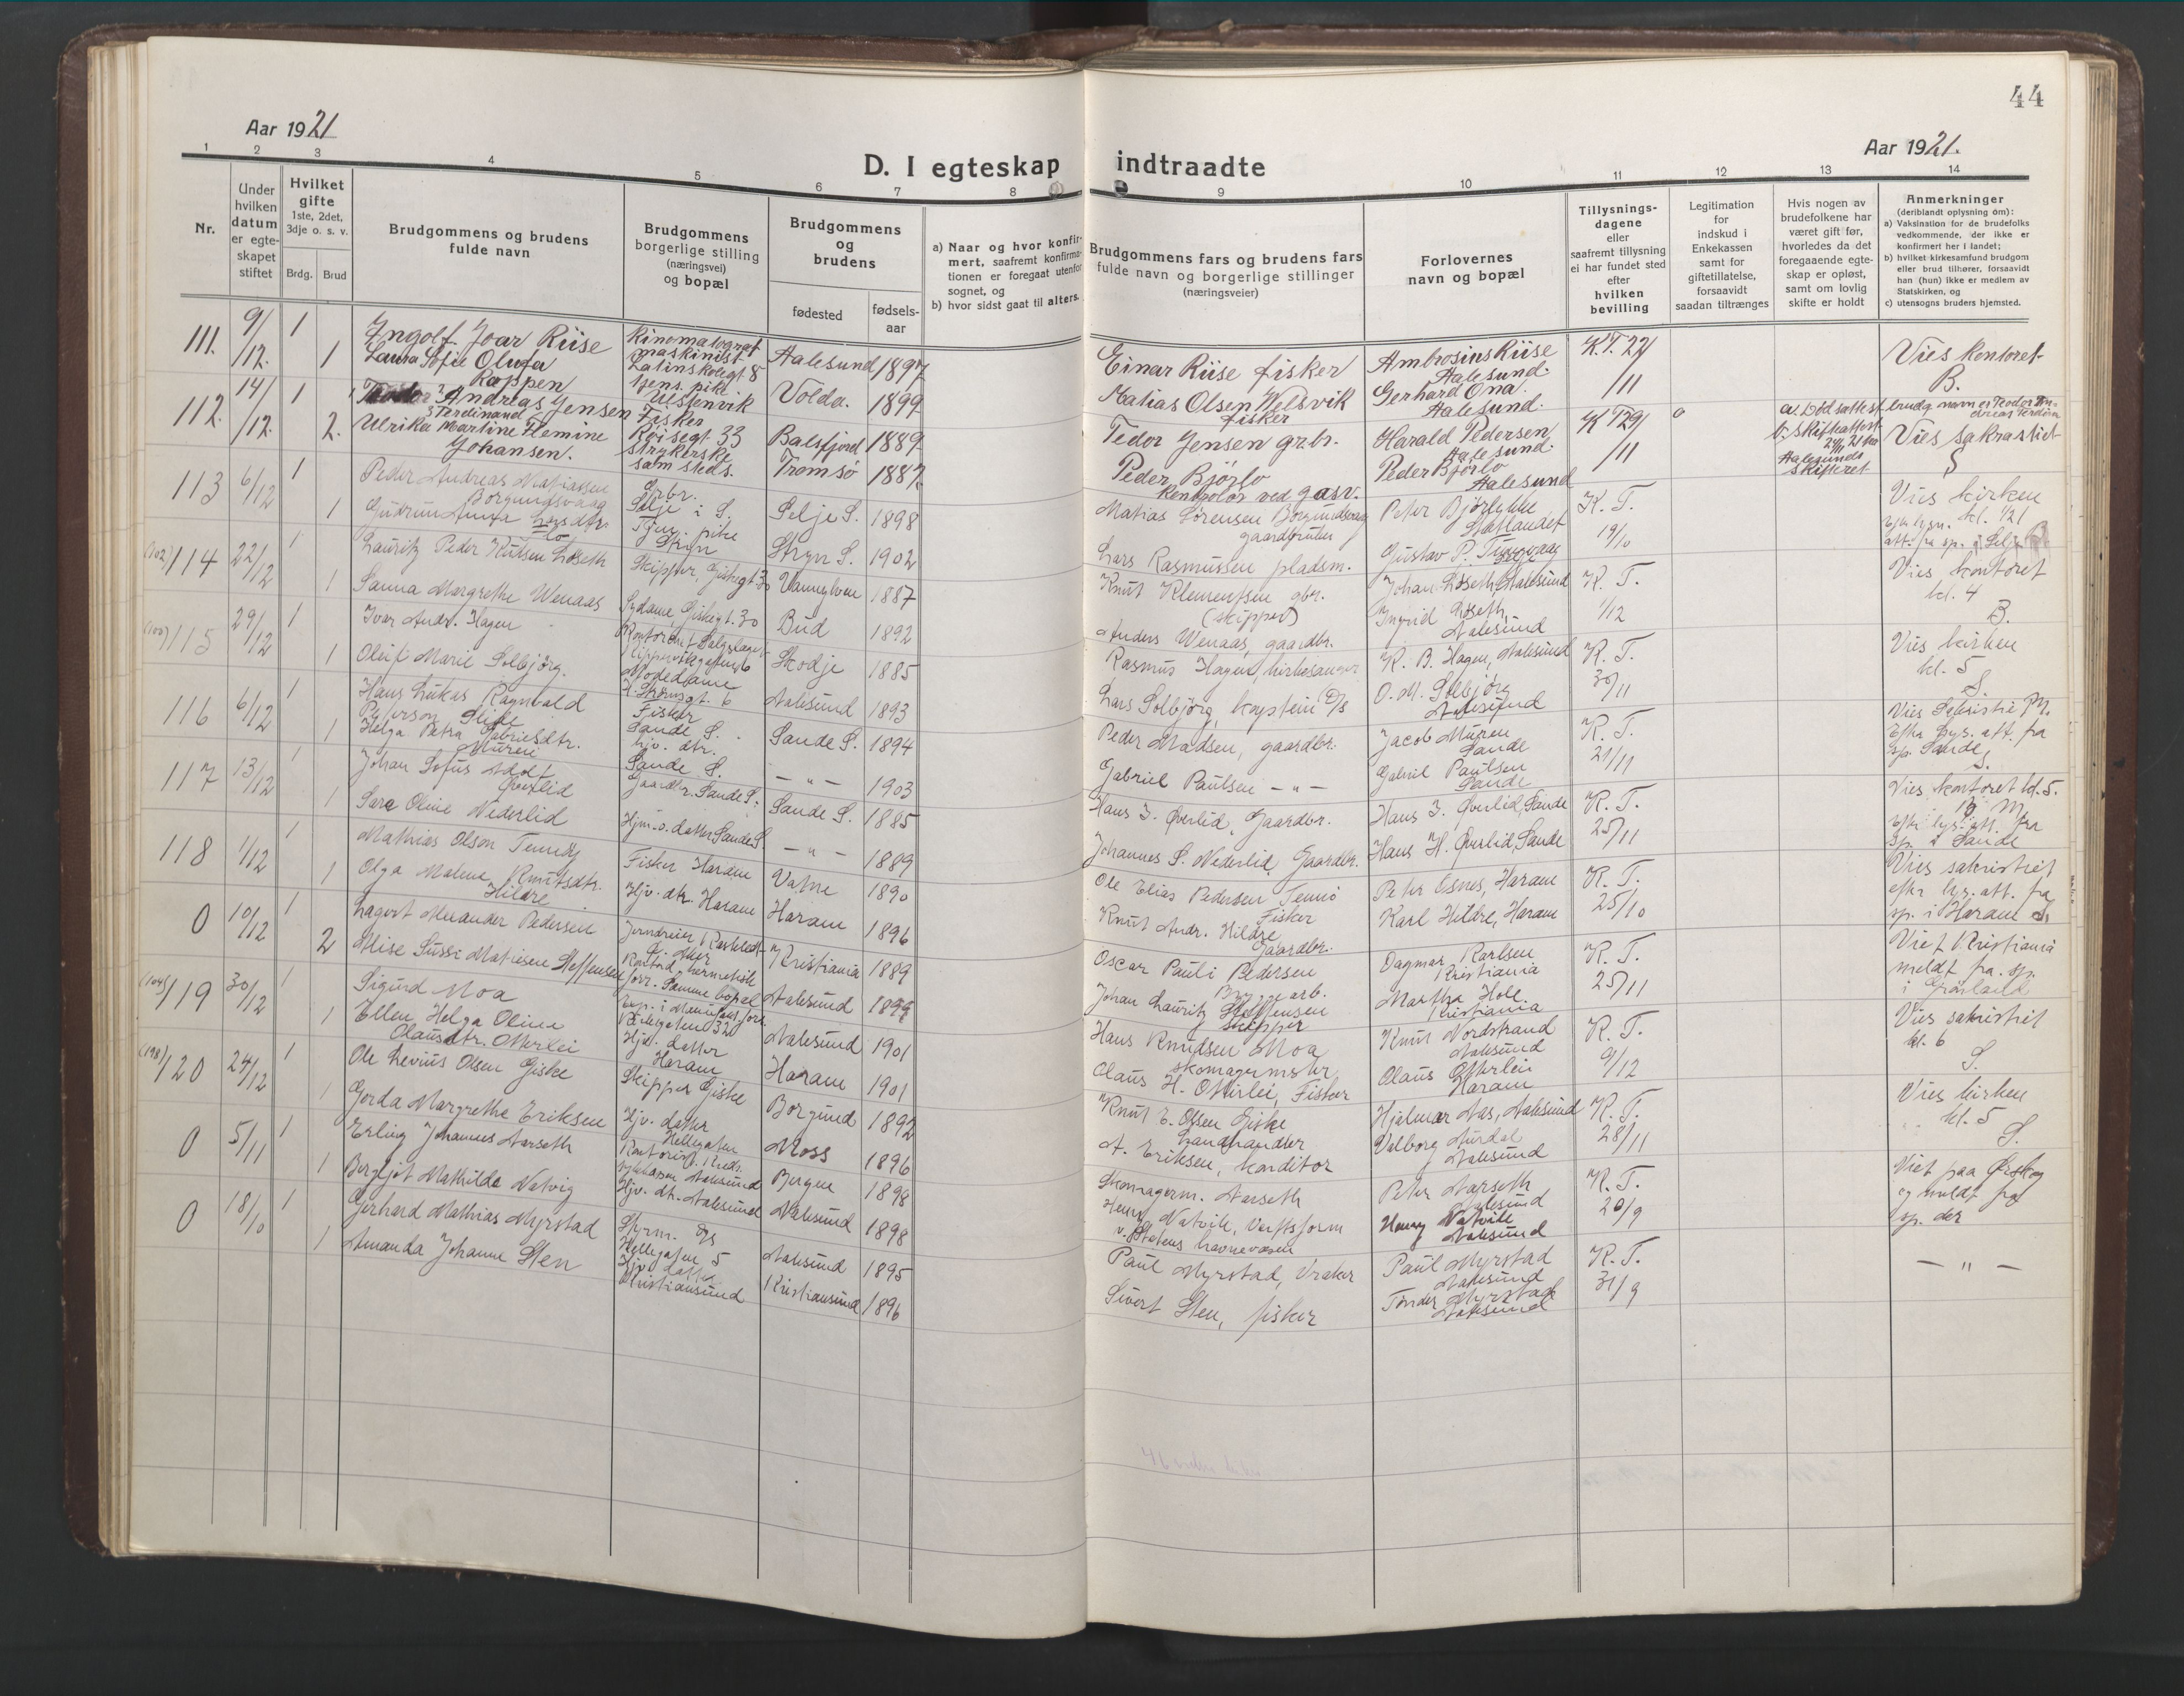 44
Aar 1921
Aar 1921.
D. I egteskap indtraadte
1 2 3 4 5 6 7 8 9 10 11 12 13 14
Nr.
Under hvilken datum er egte-skapet stiftet
Hvilket gifte
1ste, 2det, 3dje o. s. v.
Brdg. Brud
Brudgommens og brudens fulde navn
Brudgommens borgerlige stilling (næringsvei) og bopæl
Brudgommens og brudens
fødested
fødsels-aar
a) Naar og hvor konfir-
mert, saafremt konfirma-
tionen er foregaat utenfor
sognet, og
b) hvor sidst gaat til alters.
Brudgommens fars og brudens fars
fulde navn og borgerlige stillinger
(næringsveier)
Forlovernes
navn og bopæl
Tillysnings-
dagene
eller
saafremt tillysning
ei har fundet sted
efter
hvilken
bevilling
Legitimation
for
indskud i
Enkekassen
samt for
giftetillatelse,
forsaavidt
saadan tiltrænges
Hvis nogen av
brudefolkene har
været gift før,
hvorledes da det
foregaaende egte-
skap er opløst,
samt om lovlig
skifte er holdt
Anmerkninger
(deriblandt oplysning om):
a) Vaksination for de brudefolks
vedkommende, der ikke er
konfirmert her i landet;
b) hvilket kirkesamfund brudgom
eller brud tilhører, forsaavidt
han (hun) ikke er medlem av
Statskirken, og
c) utensogns bruders hjemsted.
111. 9/12. 1 Ingolf Joar Riise Kinomatograf maskinist Latinskolegt. 8 Aalesund 1897 Einar Riise fisker Ambrosius Riise Aalesund. K.T. 22/11 Vies kontoret B.
1 Laura Sofie Olufa Rappen tjens. pike Ulstenvik Volda. 1899 Matias Olsen Welsvik fisker Gerhard Ona. Aalesund.
112. 14/12. 1 Teodor Andreas Ferdinand Jensen Fisker Røisegt 33 Balsfjord 1889 Tedor Jensen grbr. Harald Pedersen Aalesund. K T 29/11 0 a. Dødsattest b. Skifteattest Aalesunds Skifteret brudg. navn er Teodor Andreas Ferdinan Vies Sakrastiet S
2. Ulrika Martine Flemine Johansen. strykerske samsteds. Tromsö 1887 Peder Bjørlo Kontrolør ved gasv. Peder Bjørlo Aalesund
113 6/12 1 Peder Andreas Matiassen Borgundsvaag Grbr. Selje i S. Selje S. 1898 Matias Sørensen Borgundsvaag gaardbruker Peter Bjørlykke Statlandet K. T. 19/10 Vies kirken kl. 1/21 Efter lysn. att. fra sp. i Selje
1 Gudrun Anna Larsdtr. Lo Tjen. pike Stryn Stryn S. 1902 Lars Rasmussen pladsm. Gustav P.
(102) 114 22/12 1 Lauritz Peder Knutsen Løseth Skipper, Giskegt. 30 Vannylven 1887 Knut Klementsen gbr. (skipper) Johan Løseth, Aalesund K. T. 1/12 Vies kontoret kl. 4 B.
1 Sanna Margrethe Wenaas Sydame Giskegt. 30 Bud 1892 Anders Wenaas, gaardbr. Ingrid Løseth, Aalesund
115 29/12 1 Ivar Andr. Hagen Skodje 1885 Rasmus Hagen, kirkesanger K. B. Hagen, Aalesund K. T. 30/11 Vies kirken kl. 5 S.
1 Oleif Marie Solbjörg. Modedame Aalesund 1893 Lars Solbjörg, kaptein D/S O. M. Solbjörg Aalesund
116 6/12 1 Hans Lukas Ragnvald Pederson Fisker Sande S. Sande S. 1894 Peder Madsen, gaardbr. Jacob Muren Sande K. T. 21/11 Efter lys. att. fra sp. Sande S.
1 Helga Petra Gabrielsdtr. Muren hjv. dtr. Sande S. — " — 1903 Gabriel Paulsen — " — Gabriel Paulsen Sande
117 13/12 1 Johan Sofus Adolf Øverlid Gaardbr. Sande S. Sande S. 1885 Hans J. Øverlid, Gaardbr. Hans J. Øverlid, Sande K. T. 25/11 Vies kontoret kl. 5. B M. Efter lys. att. fra sp. i Sande
1 Sara Oline Nederlid Hjm. v. datter Sande S. — " — 1889 Johannes S. Nederlid Gaardbr. Hans H. Øverlid, Sande
118 1/12 1 Mathias Olson Fisker Haram Vatne 1890 Ole Elias Pedersen Fisker Peter Esnes, Haram K. T. 25/10 Vies sakristiet efter lys. att. fra sp. i Haram S.
1 Olga Malene Knutsdtr. Hildre Hjv. dtr. Haram Haram 1896 Knut Andr. Hildre Gaardbr. Karl Hildre, Haram
0 10/12 1 Lagert Meander Pedersen Jerndreier Kristiania 1889 Oscar Pauli Pedersen Bryggearb. Dagmar Karlsen Kristiania K. T. 25/11 Viet Kristiania meldt fra sp. i Grønland
2 Mise Sussi Matiesen Steffensen Samme bopæl Aalesund 1899 Johan Lauritz Steffensen Skipper Martha Holl Kristiania
(104) 119 30/12 1 Sigurd Moa Aalesund 1901 Hans Knudsen Moa Skomagermster Knut Nordstrand Aalesund K. T. 9/12 Vies sakristiet kl. 6 S.
1 Ellen Helga Oline Olausdtr. Otterlei Hjv. datter Haram Haram 1901 Olaus H. Otterlei, Fisker Olaus Otterlei Haram
(198) 120 24/12 1 Ole Levius Olsen Giske Skipper Giske Borgund 1892 Knut E. Olsen Giske Landhandler Hjalmar Aas, Aalesund K. T. 28/11 Vies kirken kl. 5 S.
1 Gerda Margrethe Eriksen Hjv. datter Hellegaten Moss 1896 A. Eriksen, konditor Valborg Aurdal Aalesund
0 5/11 1 Erling Johannes Aarseth Kontorist Aalesund Bergen 1898 Skomagerm. Aarseth Peter Aarseth Aalesund K. T. 20/9 Viet paa Ørskog og meldt fra sp. der
1 Bergljot Mathilde Natvig Hjv. dt. Aalesund Aalesund 1898 Henry Natvik, Verftsform v. Statens havnevæsen Henry Natvik Aalesund
0 18/10 1 Gerhard Mathias Myrstad Styrm. D/S Hellegaten 5 Aalesund 1895 Paul Myrstad, Vraker Paul Myrstad Aalesund K. T. 31/9 — " —
1 Amanda Johanne Sten Hjv. datter Kristiansund Kristiansund 1896 Sivert Sten, fisker Tønder Myrstad Aalesund